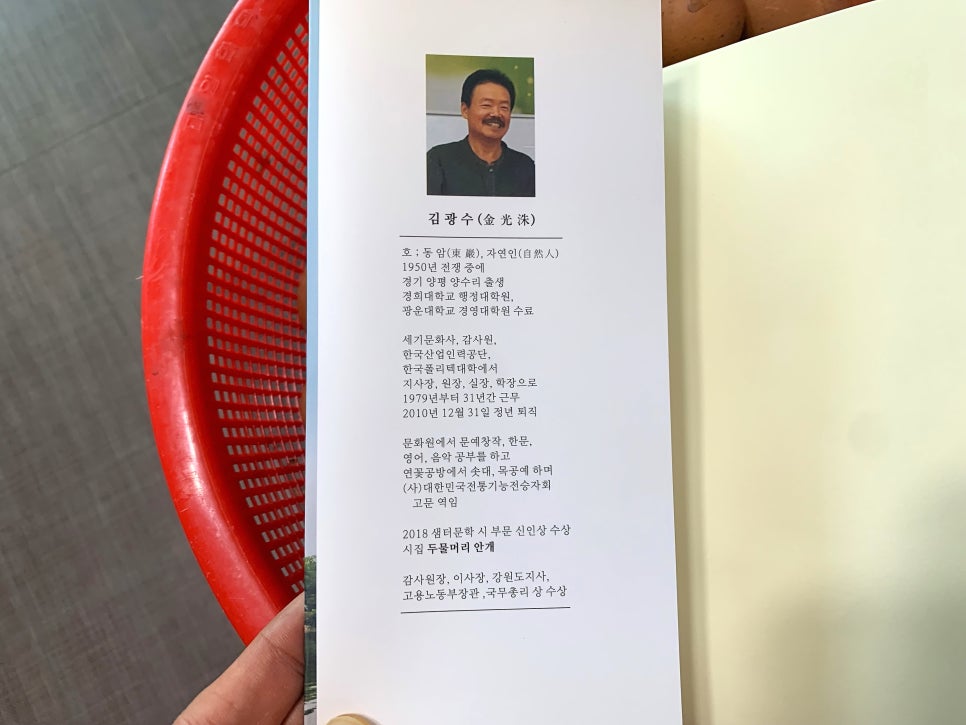 김 광 수 (金 光 洙)
호 ; 동 암(東 巖), 자연인(自然人)
1950년 전쟁 중에
경기 양평 양수리 출생
경희대학교 행정대학원,
광운대학교 경영대학원 수료
세기문화사, 감사원,
한국산업인력공단,
한국폴리텍대학에서
지사장, 원장, 실장, 학장으로
1979년부터 31년간 근무
2010년 12월 31일 정년 퇴직
문화원에서 문예창작, 한문,
영어, 음악 공부를 하고
연꽃공방에서 솟대, 목공예 하며
(사)대한민국전통기능전승자회
고문 역임
2018 샘터문학 시 부문 신인상 수상
시집 두물머리 안개
감사원장, 이사장, 강원도지사,
고용노동부장관 ,국무총리 상 수상